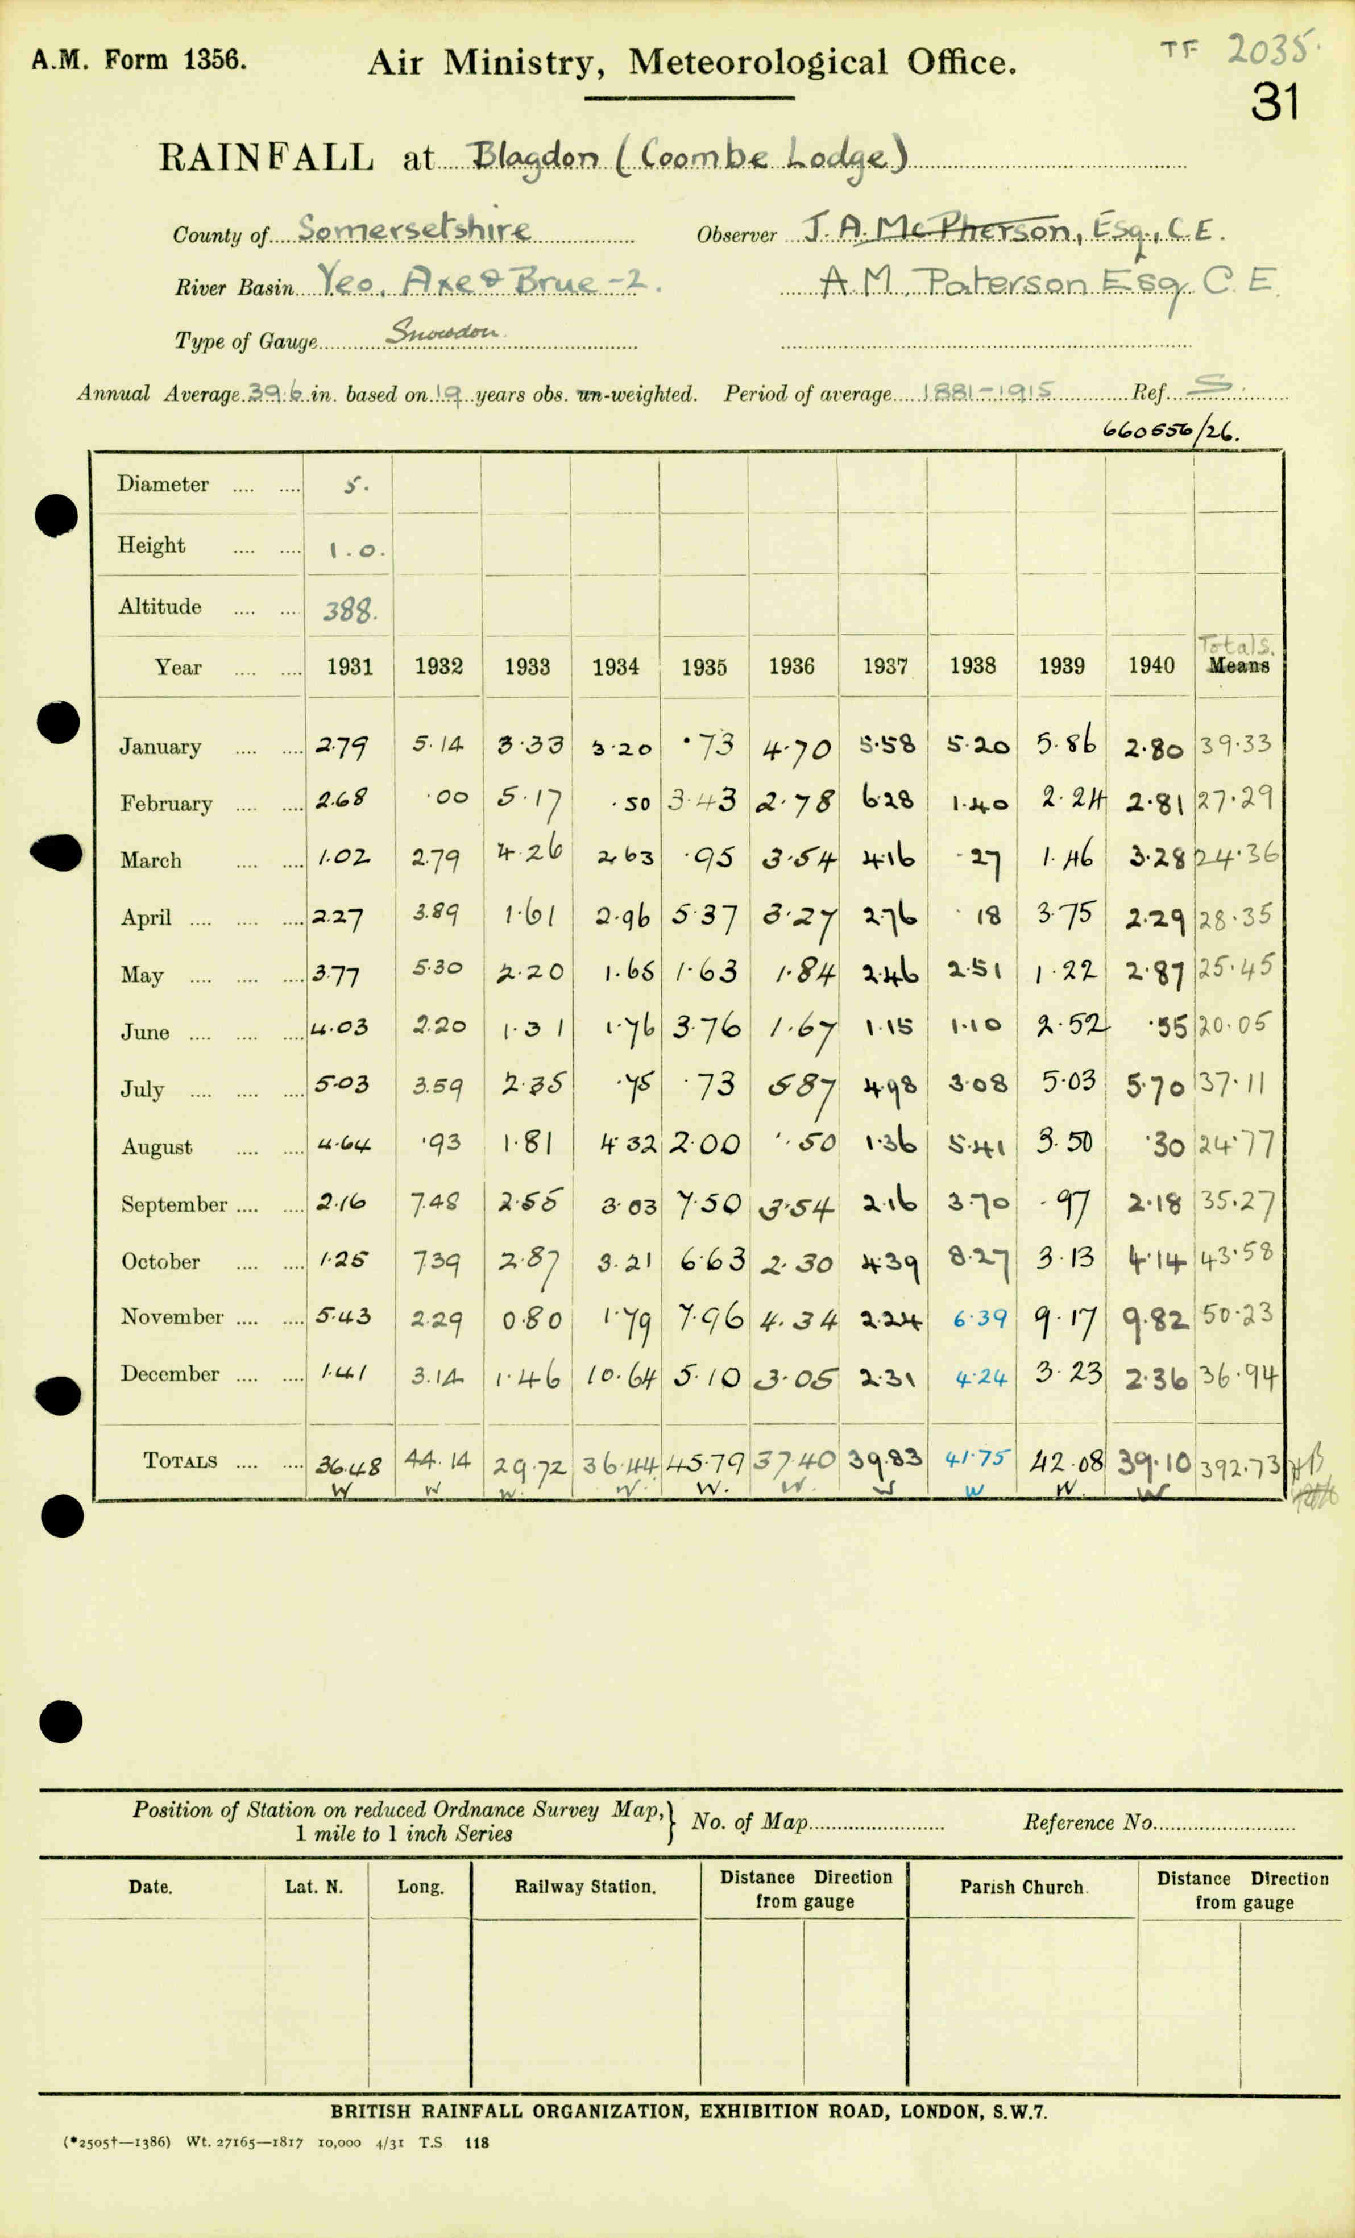 A.M. Form 1356.
Air Ministry, Meteorological Office.
TF 2035.
31
RAINFALL at Blagdon (Coombe Lodge)
County of Somersetshire Observer J. A. McPherson, Esq., C.E.
River Basin Yeo, Axe & Brue -2. A.M. Paterson Esq C.E.
Type of Gauge Snowdon.
Annual Average 39.6 in. based on 19 years obs. un-weighted. Period of average 1881-1915 Ref. S.
660556/26.
Diameter .... .... 5.
Height .... .... 1.0.
Altitude .... .... 388.
Totals.
Year .... .... 1931 1932 1933 1934 1935 1936 1937 1938 1939 1940 Means
January .... .... 2.79 5.14 3.33 3.20 .73 4.70 5.58 5.20 5.86 2.80 39.33
February .... .... 2.68 .00 5.17 .50 3.43 2.78 6.28 1.40 2.24 2.81 27.29
March .... .... 1.02 2.79 4.26 2.63 .95 3.54 4.16 .27 1.46 3.28 24.36
April .... .... .... 2.27 3.89 1.61 2.96 5.37 3.27 2.76 .18 3.75 2.29 28.35
May .... .... .... 3.77 5.30 2.20 1.65 1.63 1.84 2.46 2.51 1.22 2.87 25.45
June .... .... .... 4.03 2.20 1.31 1.76 3.76 1.67 1.15 1.10 2.52 .55 20.05
July .... .... .... 5.03 3.59 2.35 .75 .73 5.87 4.98 3.08 5.03 5.70 37.11
August .... .... 4.64 .93 1.81 4.32 2.00 .50 1.36 5.41 3.50 .30 24.77
September .... .... 2.16 7.48 2.55 3.03 7.50 3.54 2.16 3.70 .97 2.18 35.27
October .... .... 1.25 7.39 2.87 3.21 6.63 2.30 4.39 8.27 3.13 4.14 43.58
November .... .... 5.43 2.29 0.80 1.79 7.96 4.34 2.24 6.39 9.17 9.82 50.23
December .... .... 1.41 3.14 1.46 10.64 5.10 3.05 2.31 4.24 3.23 2.36 36.94
TOTALS .... .... 36.48 44.14 29.72 36.44 45.79 37.40 39.83 41.75 42.08 39.10 392.73
W W W. W. W. W. W W W. W
Position of Station on reduced Ordnance Survey Map,} No. of Map Reference No.
1 mile to 1 inch Series
Date. Lat. N. Long. Railway Station. Distance Direction Parish Church. Distance Direction
from gauge from gauge
BRITISH RAINFALL ORGANIZATION, EXHIBITION ROAD, LONDON, S.W.7.
(*2505†—1386) Wt. 27165—1817 10,000 4/31 T.S 118